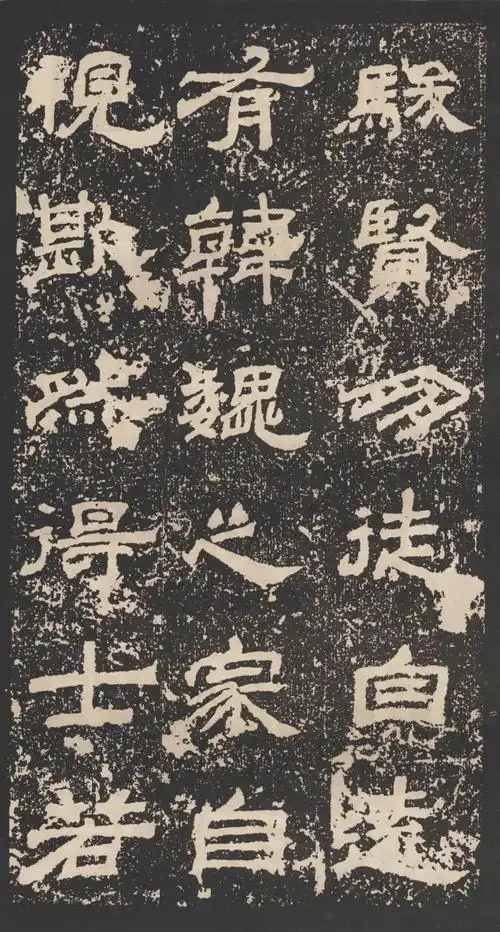 賢徒自
有韓魏之家自
視然得士若